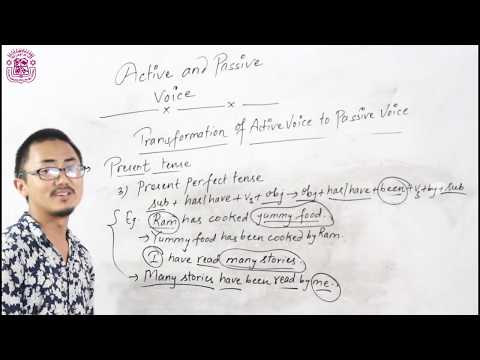 Active and Passive
Voice
Transformation of Active Voice to Passive Voice
Present tense
3) Present perfect tense
sub + has/have + v3 + obj → obj + has/have + been + v3 + by + sub
Eg. Ram has cooked yummy food.
→ Yummy food has been cooked by Ram.
I have read many stories.
→ Many stories have been read by me.